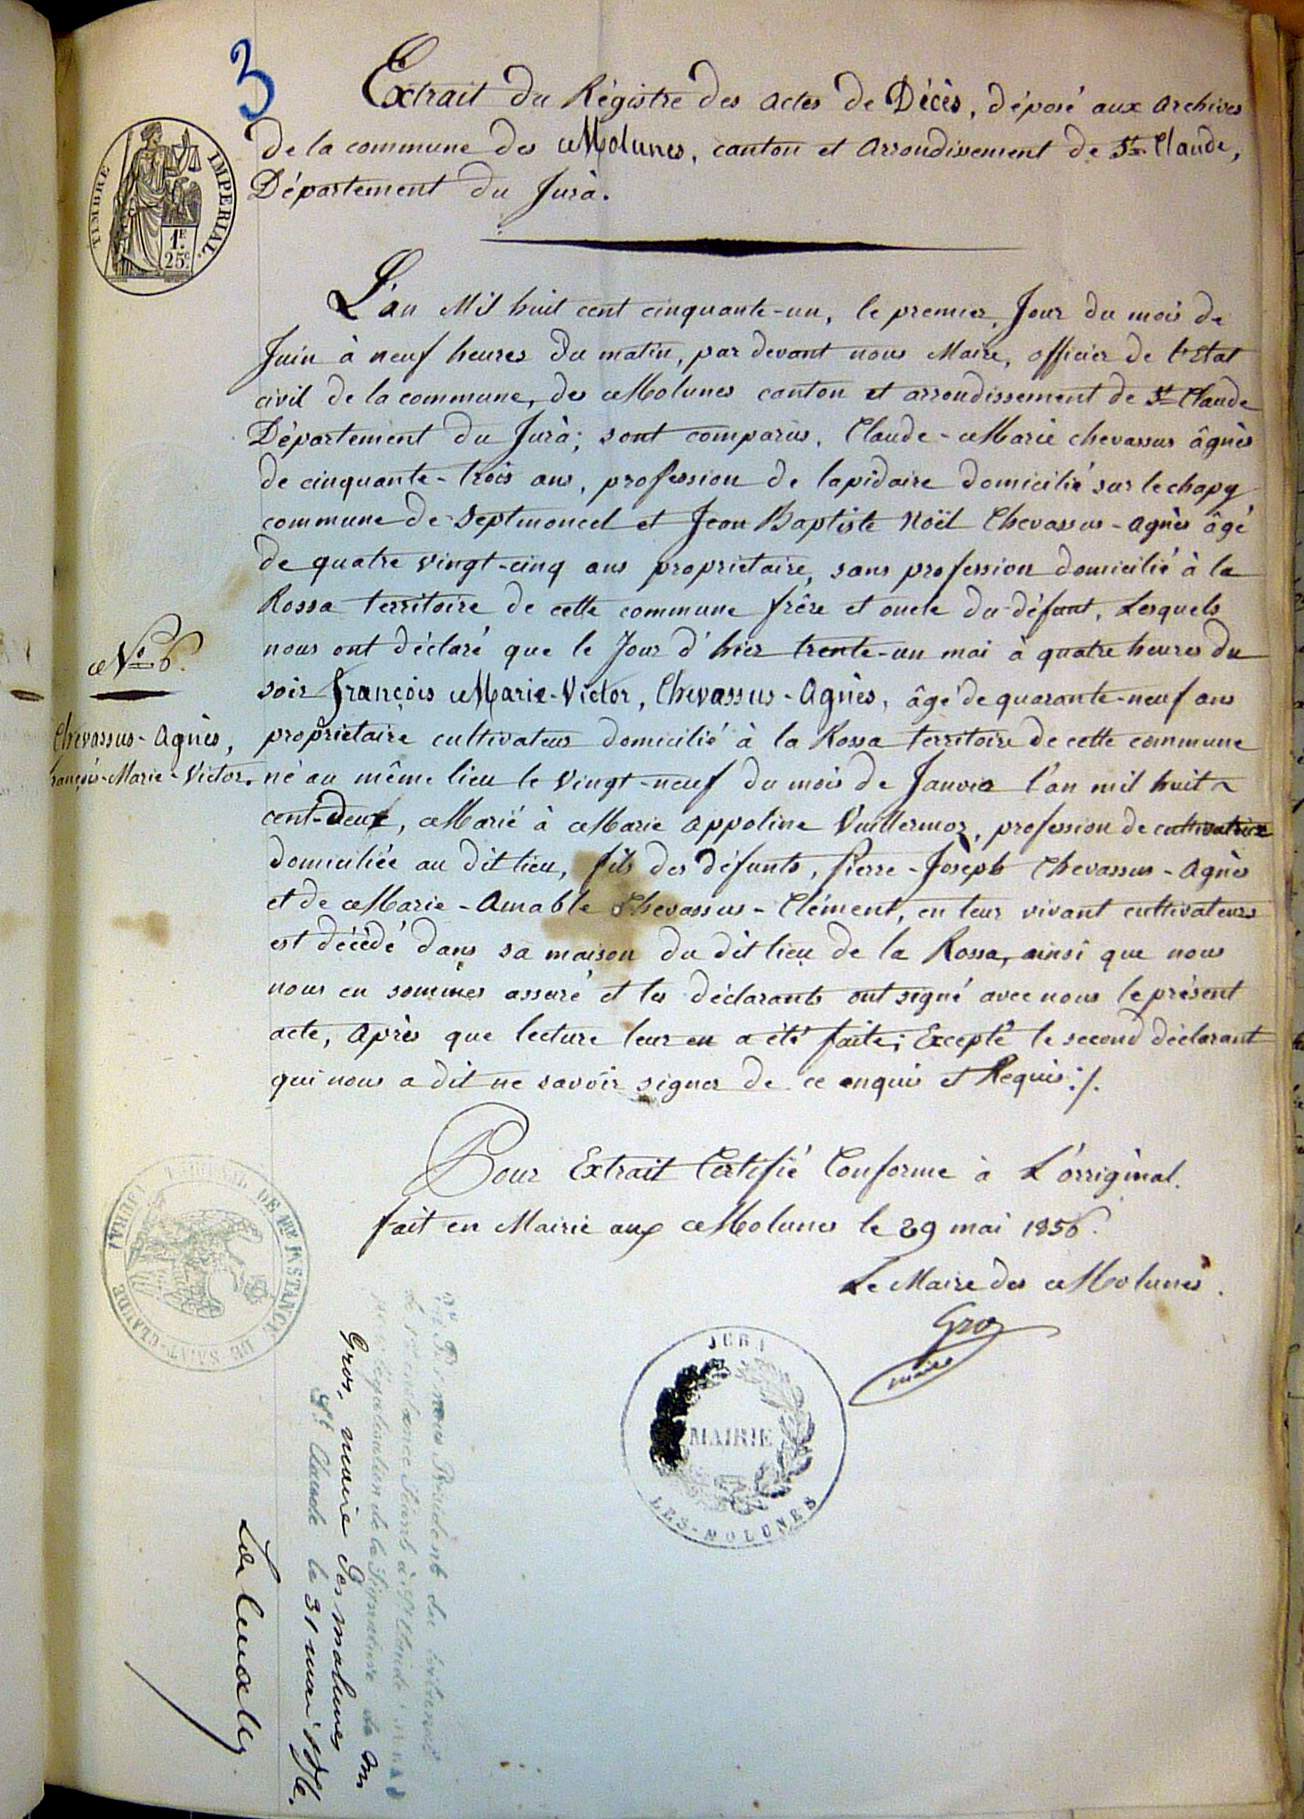 3
TIMBRE IMPERIAL.
1F.
25c
Extrait du Régistre des actes de Décès, déposé aux archives
de la commune des Molunes, canton et arrondissement de St Claude,
Département du Jura.
L'an Mil huit cent cinquante-un, le premier, Jour du mois de
Juin à neuf heures du matin, par devant nous Maire, officier de l'Etat
civil de la commune, des Molunes canton et arrondissement de St Claude
Département du Jurà; sont comparus, Claude-Marie chevassus âgnès
de cinquante-trois ans, profession de lapidaire domicilié sur le
commune de Septmoncel et Jean Baptiste Noël Chevassus-Agnès âgé
de quatre vingt-cinq ans propriétaire, sans profession domicilié à la
Rossa territoire de cette commune frère et oncle du défunt, Lesquels
nous ont déclaré que le Jour d'hier trente-un mai à quatre heures du
soir François Marie-Victor, Chevassus-Agnès, âgé de quarante-neuf ans
propriétaire cultivateur domicilié à la Rossa territoire de cette commune
né au même lieu le Vingt-neuf du mois de Janvier l'an mil huit
cent-deux, Marié à Marie Appoline Vuillermoz, profession de cultivatrice
domiciliée au dit lieu, fils des défunts, Pierre-Joseph Chevassus-Agnès
et de Marie-Amable Chevassus-Clément, en leur vivant cultivateurs
est décédé dans sa maison du dit lieu de la Rossa, ainsi que nous
nous en sommes assuré et les déclarants ont signé avec nous le présent
acte, Après que lecture leur en a été faite; Excepté le second déclarant
qui nous a dit ne savoir signer de ce enquis et Requis:/.
No 6.
Chevassus-Agnès,
François-Marie-Victor.
Pour Extrait Certifié Conforme à L'orriginal.
fait en Mairie aux Molunes le 29 mai 1856.
Le Maire des Molunes.
Gros
maire
JURA
MAIRIE
LES-MOLUNES
TRIBUNAL DE 1RE INSTANCE DE SAINT-CLAUDE
Vu Par nous Président du tribunal
de 1re instance Séant à St Claude
légalisation de la Signature de M
Gros, maire des molunes
St Claude le 31 mai 1856.